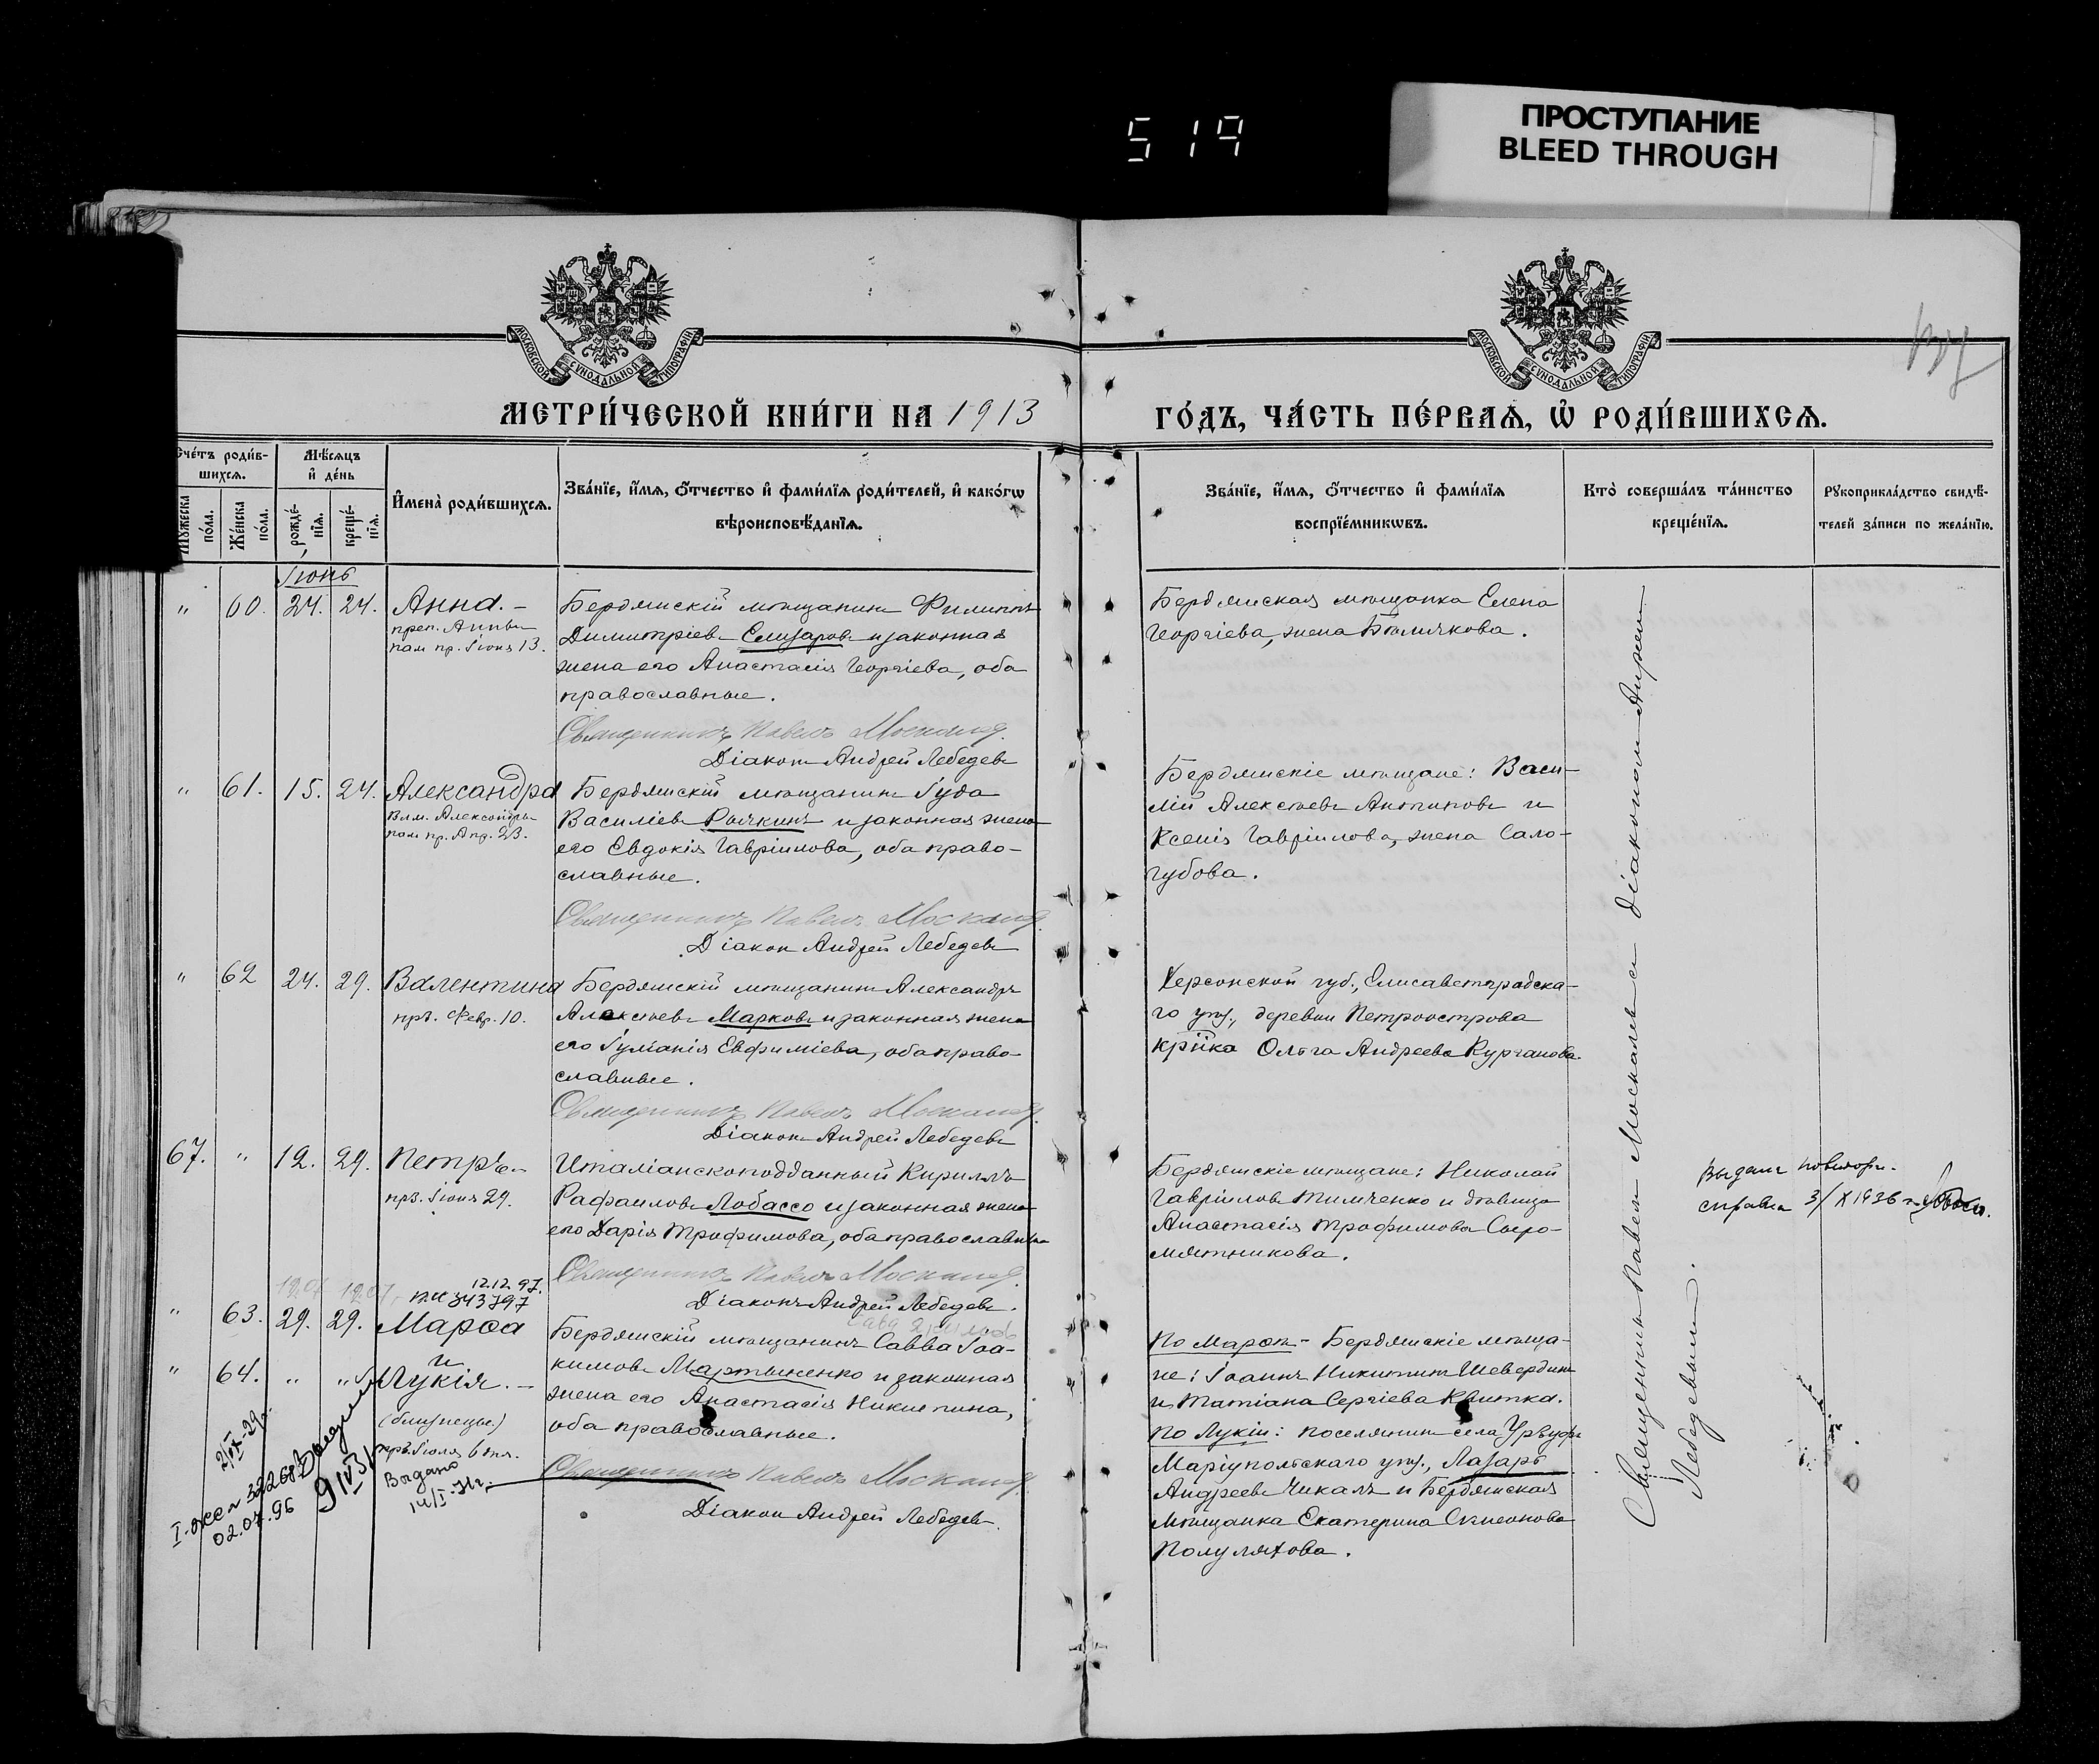 519
ПРОСТУПАНИЕ
BLEED THROUGH
МОСКОВСКОЙ СѴНОДАЛЬНОЙ ТИПОГРАФІИ
МОСКОВСКОЙ СѴНОДАЛЬНОЙ ТИПОГРАФІИ
МЕТРИ́ЧЕСКОЙ КНИ́ГИ НА 1913
ГО́ДЪ, ЧА́СТЬ ПЕ́РВАѦ, Ѡ҆ РОДИ́ВШИХСѦ.
Счéтъ роди́в-
шихсѧ.
Мѣ́сѧцъ
и҆ де́нь
Мꙋжеска
по́ла.
Же́нска
по́ла.
рожде́-
нїѧ.
креще́-
нїѧ.
И҆мена̀ роди́вшихсѧ.
Зва́нїе, и҆́мѧ, ѻ҆́тчество и҆ фами́лїѧ роди́телей, и҆ како́гѡ
вѣроисповѣ́данїѧ.
Зва́нїе, и҆́мѧ, ѻ҆́тчество и҆ фами́лїѧ
воспрїе́мникѡвъ.
Кто̀ соверша́лъ та́инство
креще́нїѧ.
Рꙋкоприкла́дство свидѣ́-
телей за́писи по жела́нїю.
Іюнь
" 60. 24. 24. Анна. –
преп. Анны
пам пр. Іюня 13.
Бердянскій мѣщанинъ Филиппъ
Димитріевъ Елизаровъ и законная
жена его Анастасія Георгіева, оба
православные.
Священникъ Павелъ Москалевъ
Діаконъ Андрей Лебедевъ
Бердянская мѣщанка Елена
Георгіева, жена Бѣлякова.
" 61. 15. 24. Александра
Вел. Александры
пам пр. Апр. 23.
Бердянскій мѣщанинъ Іуда
Василіевъ Рычкинъ и законная жена
его Евдокія Гавріилова, оба право-
славные.
Священникъ Павелъ Москалевъ
Діаконъ Андрей Лебедевъ
Бердянскіе мѣщане: Васи-
лій Алексѣевъ Антиповъ и
Ксенія Гавріилова, жена Сало-
губова.
" 62 24. 29. Валентина
пр. Февр. 10.
Бердянскій мѣщанинъ Александръ
Алексѣевъ Марковъ и законная жена
его Іуліанія Евфиміева, оба право-
славные.
Священникъ Павелъ Москалевъ
Діаконъ Андрей Лебедевъ
Херсонской губ., Елисаветградска-
го у., деревни Петроострова
кр–ка Ольга Андреева Курганова.
67. " 12. 29. Петръ.
пр. Іюня 29.
Италіанскоподданный Кириллъ
Рафаиловъ Лобассо и законная жена
его Дарія Трофимова, оба православные
Священникъ Павелъ Москалевъ
Діаконъ Андрей Лебедевъ.
Бердянскіе мѣщане: Николай
Гавріиловъ Тимченко и дѣвица
Анастасія Трофимова Сыро-
мятникова.
справка 3/X 1936 г.
12.12.97.
343797
" 63. 29. 29. Марѳа
и
" 64. " " Лукія. –
(близнецы.)
пр. Іюля 6 дня.
Выдано
14/I-
2/IX-29
02.07.96
Бердянскій мѣщанинъ Савва Іоа-
кимовъ Мартыненко и законная
жена его Анастасія Никитина,
оба православные.
Священникъ Павелъ Москалевъ
Діаконъ Андрей Лебедевъ.
По Марѳѣ – Бердянскіе мѣща-
не: Іоаннъ Никитинъ Шевердинъ
и Татіана Сергіева Квитка.
По Лукіи: поселянинъ села Урзуфъ
Маріупольскаго у., Лазарь
Андреевъ Чикалъ и Бердянская
мѣщанка Екатерина Симеонова
Полуляхова.
Священникъ Павелъ Москалевъ съ діакономъ Андреемъ
Лебедевымъ.